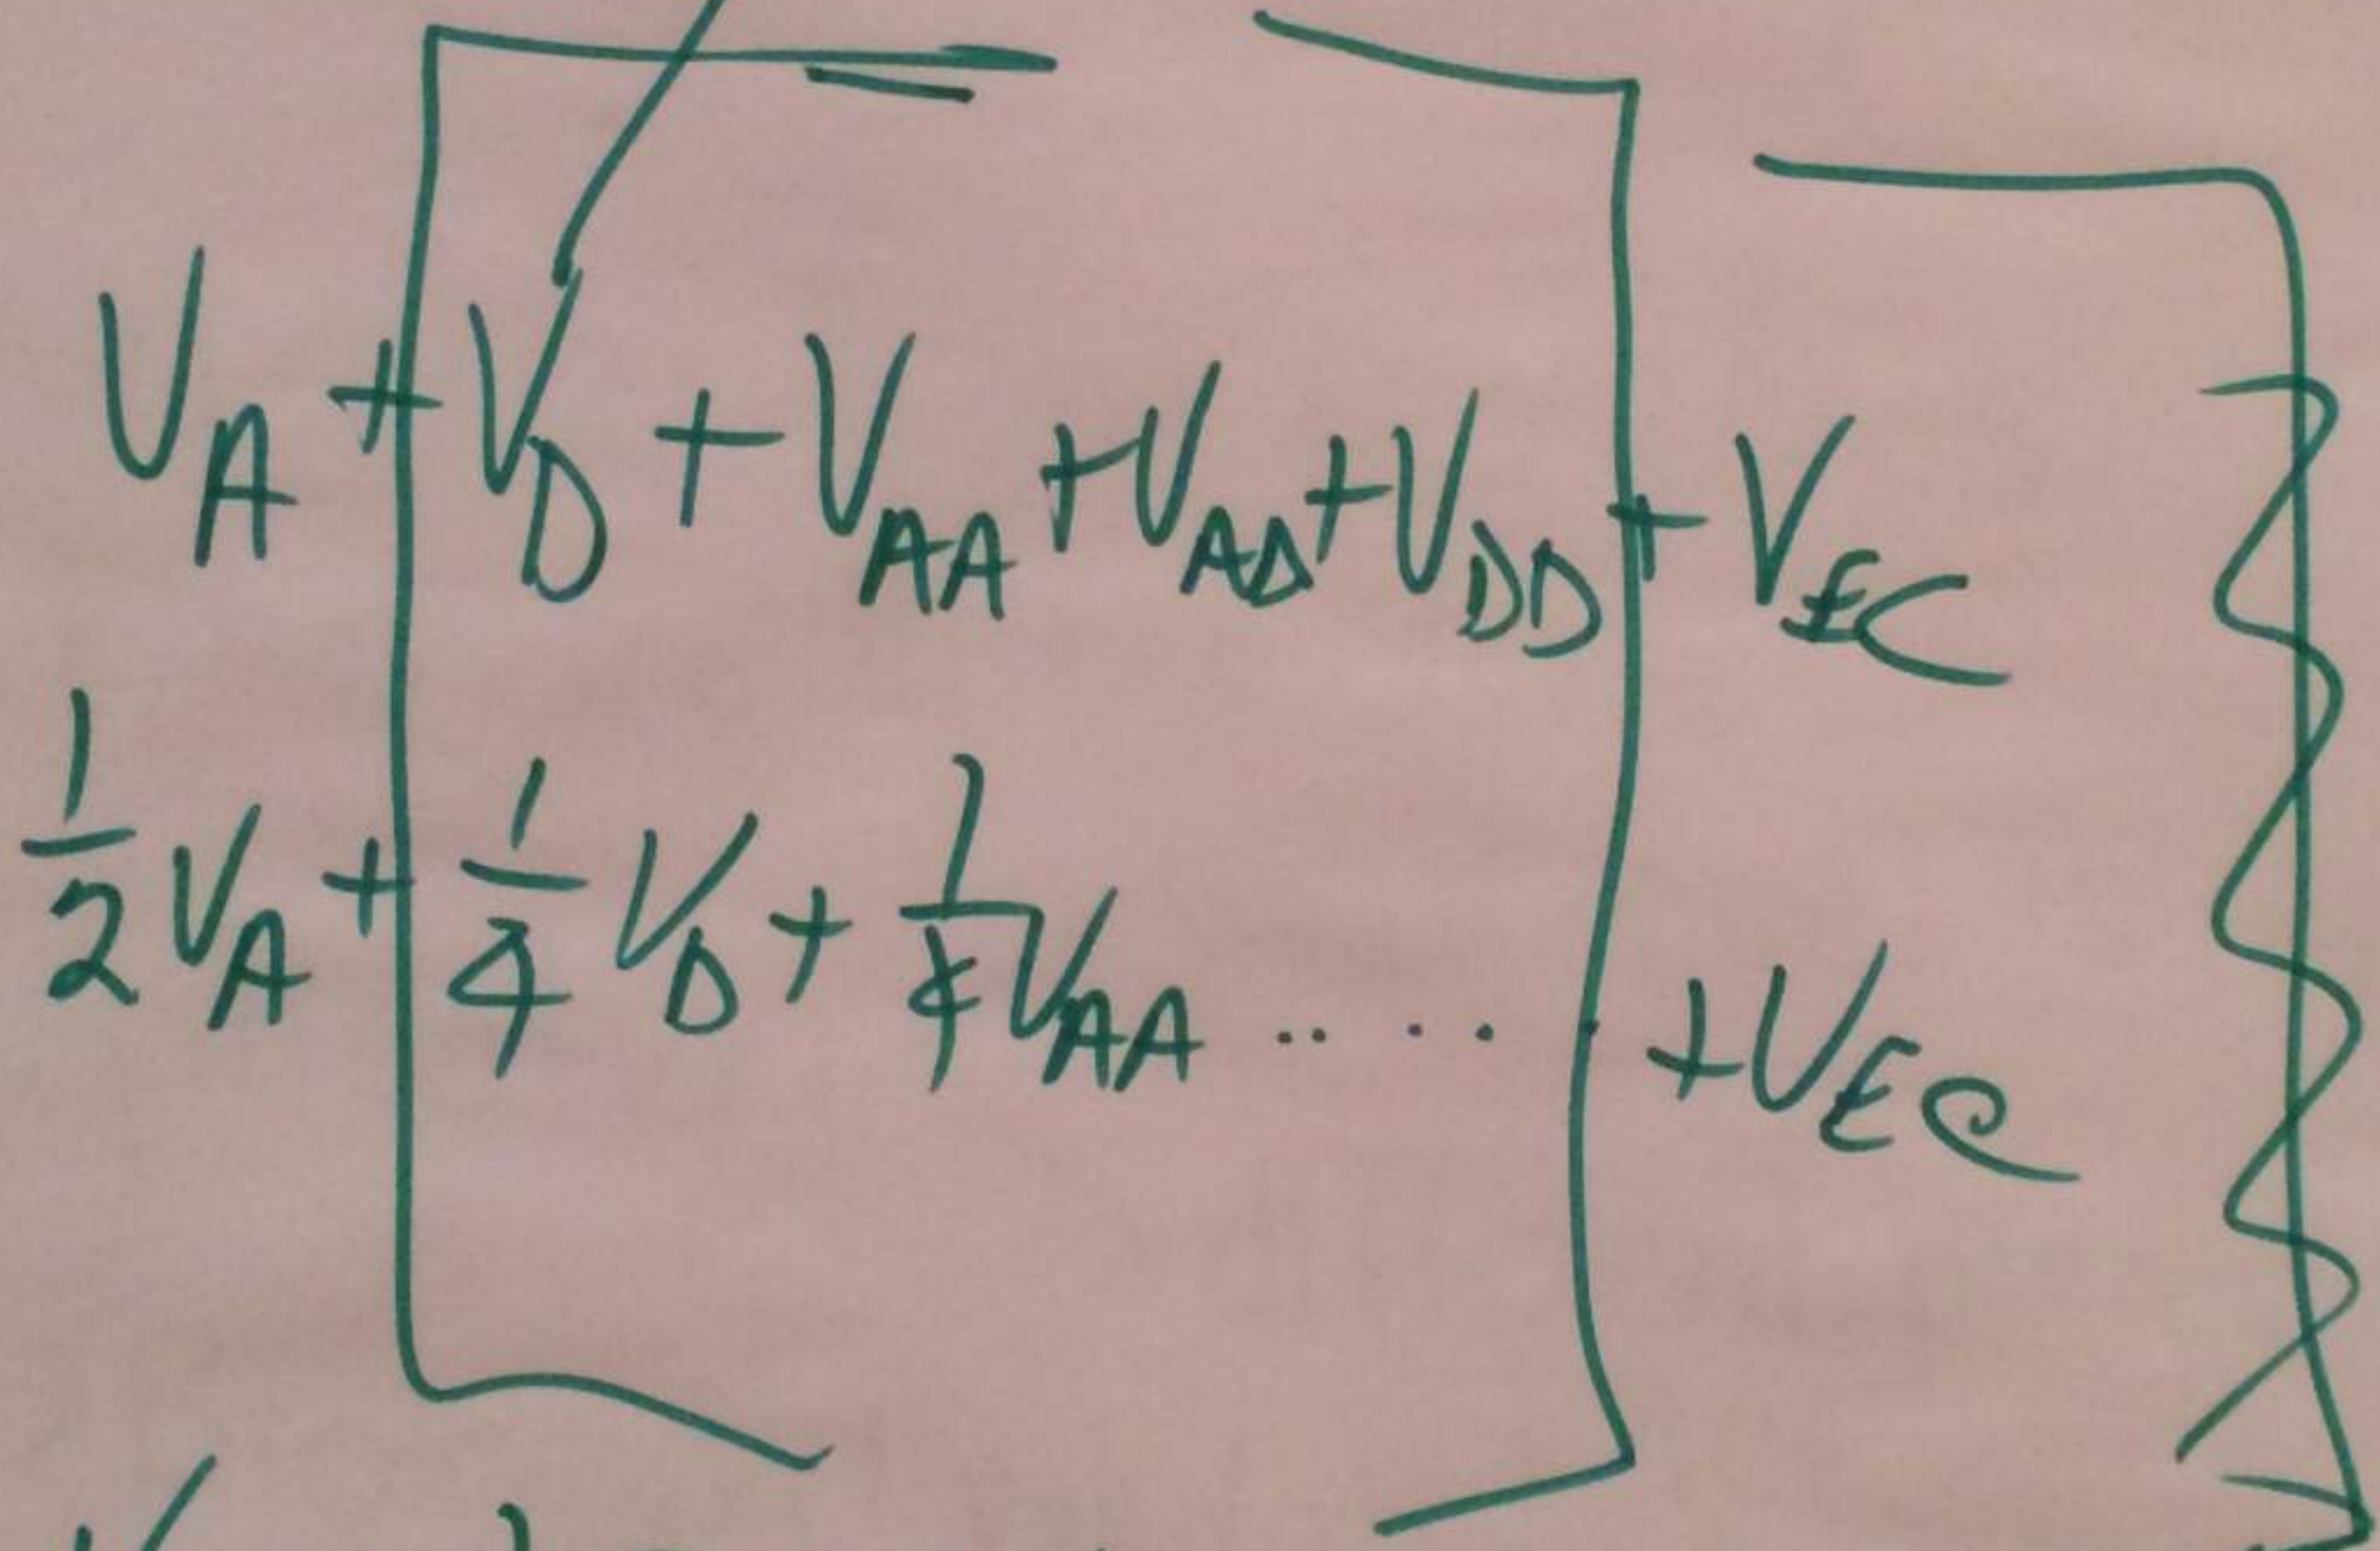 V_A + V_D + V_AA + V_AD + V_DD + V_EC
1/2 V_A + 1/4 V_D + 1/4 V_AA ...... + V_EC